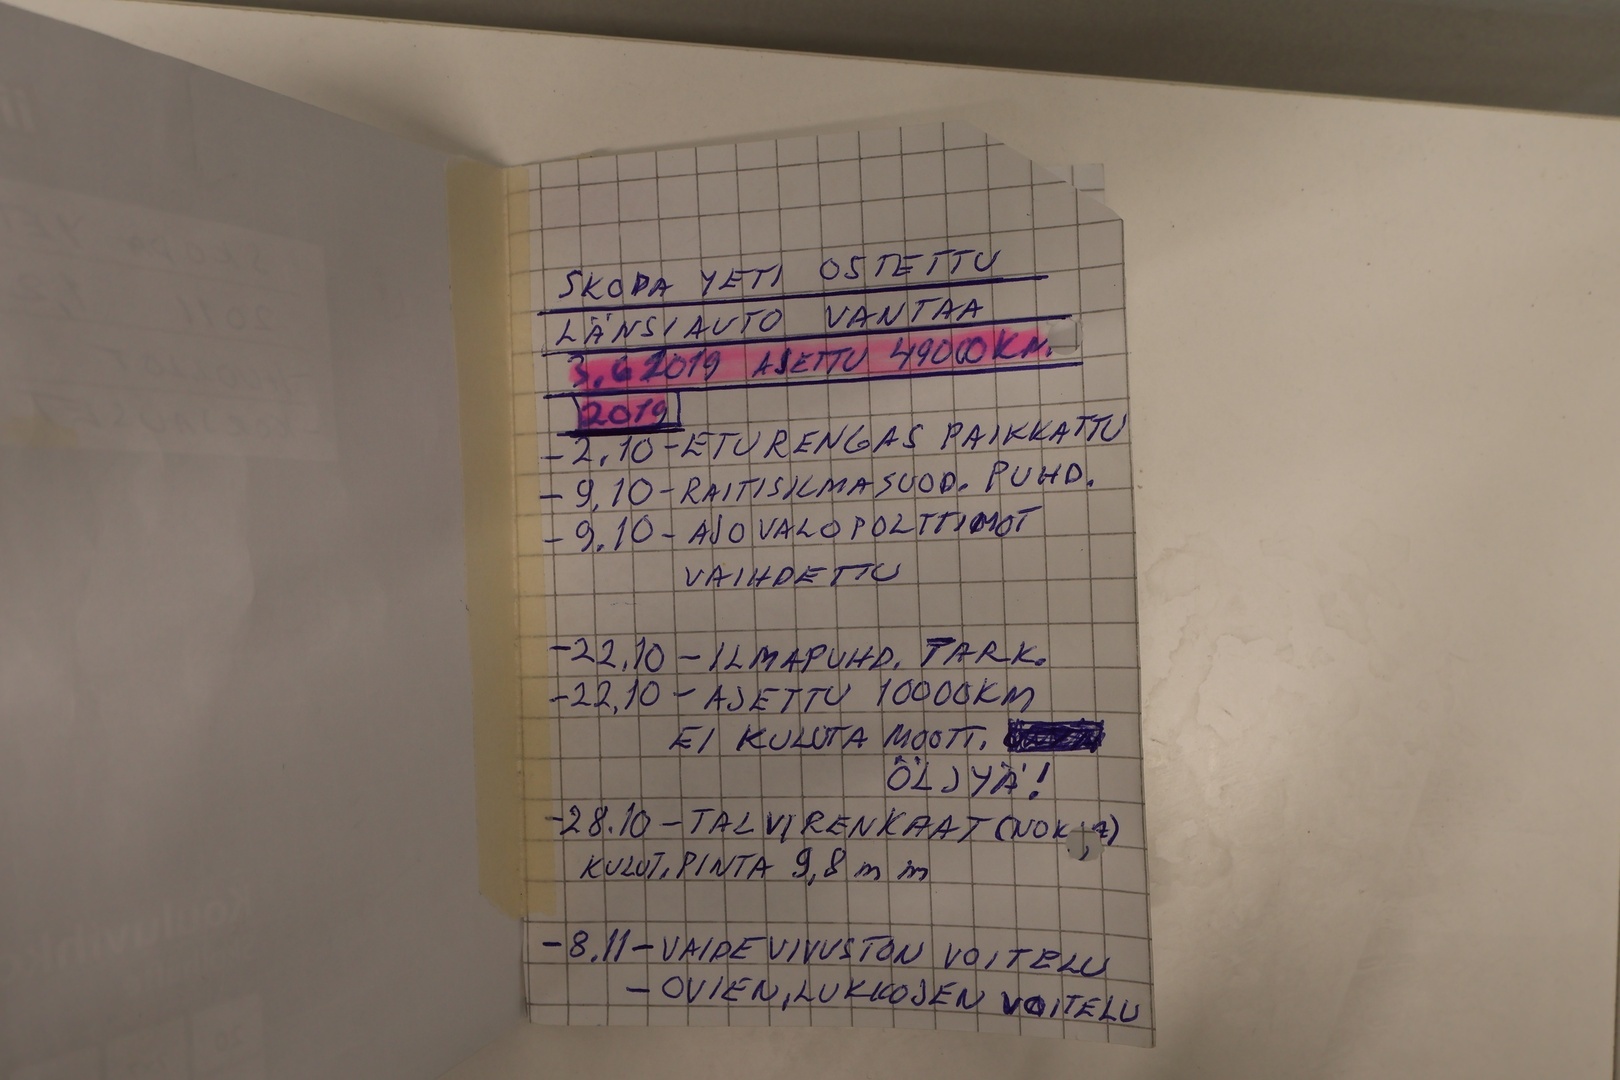 SKODA YETI OSTETTU
LÄNSIAUTO VANTAA
3.6 2019 AJETTU 49000KM.
2019
-2.10-ETURENGAS PAIKKATTU
-9.10-RAITISILMASUOD. PUHD.
-9.10-AJOVALOPOLTTIMOT
VAIHDETTU
-22.10-ILMAPUHD. TARK.
-22.10-AJETTU 10000KM
EI KULUTA MOOTT.
ÖLJYÄ!
-28.10-TALVIRENKAAT (NOKIA)
KULUT.PINTA 9,8 mm
-8.11-VAIDEVIVUSTON VOITELU
-OVIEN, LUKKOJEN VOITELU